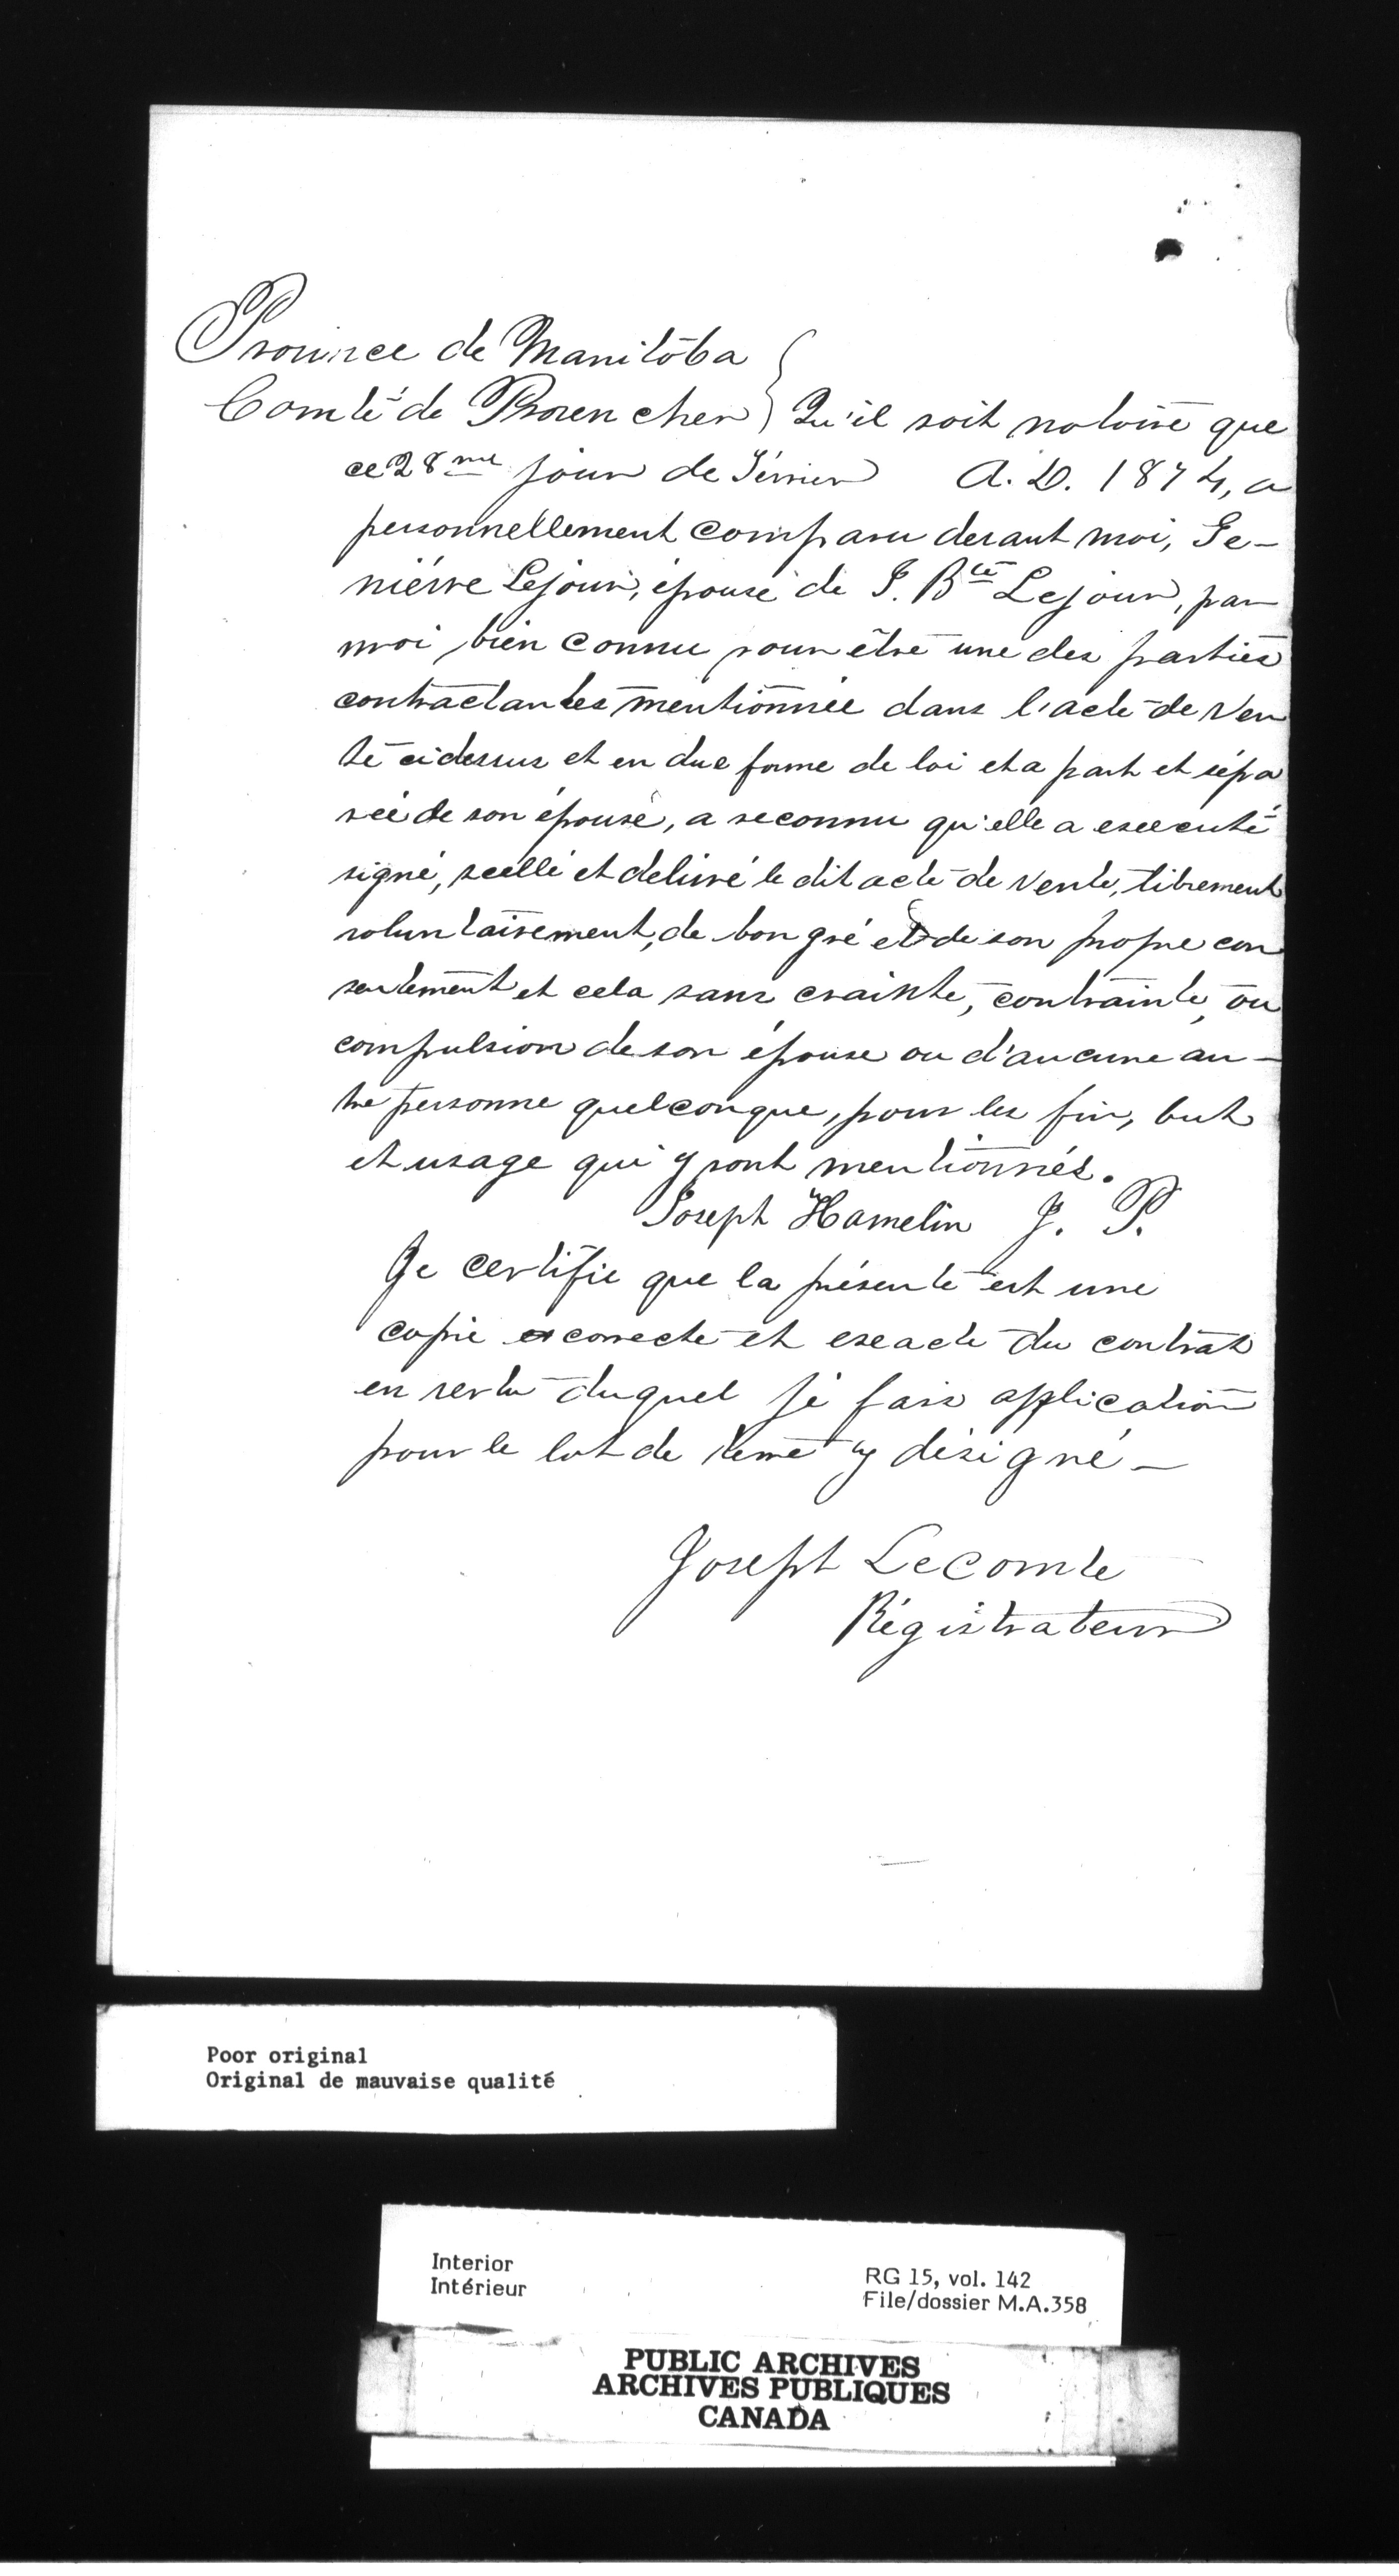 Province de Manitoba
Comté de Provencher } Qu'il soit notoire que
ce 28me jour de Février A. D. 1874, a
personnellement comparu devant moi, Ge-
niévre Lejour, épouse de J. Bte Lejour, par
moi bien connu pour être une des parties
contractantes mentionnée dans l'acte de ven
te cidessus et en due forme de loi et a part et sépa
rée de son épouse, a reconnu qu'elle a executé
signé, scellé et delivré le dit acte de vente, librement
volontairement, de bon gré et de son propre con
sentement et cela sans crainte, contrainte, ou
compulsion de son épouse ou d'aucune au-
tre personne quelconque, pour les fin, but
et usage qui y sont mentionnés.
Joseph Hamelin J. P.
Je certifie que la présente est une
copie et correcte et exacte du contrat
en vertu duquel je fais application
pour le lot de terre y désigné -
Joseph Lecomte
Régistrateur
Poor original
Original de mauvaise qualité
Interior
Intérieur
RG 15, vol. 142
File/dossier M.A.358
PUBLIC ARCHIVES
ARCHIVES PUBLIQUES
CANADA